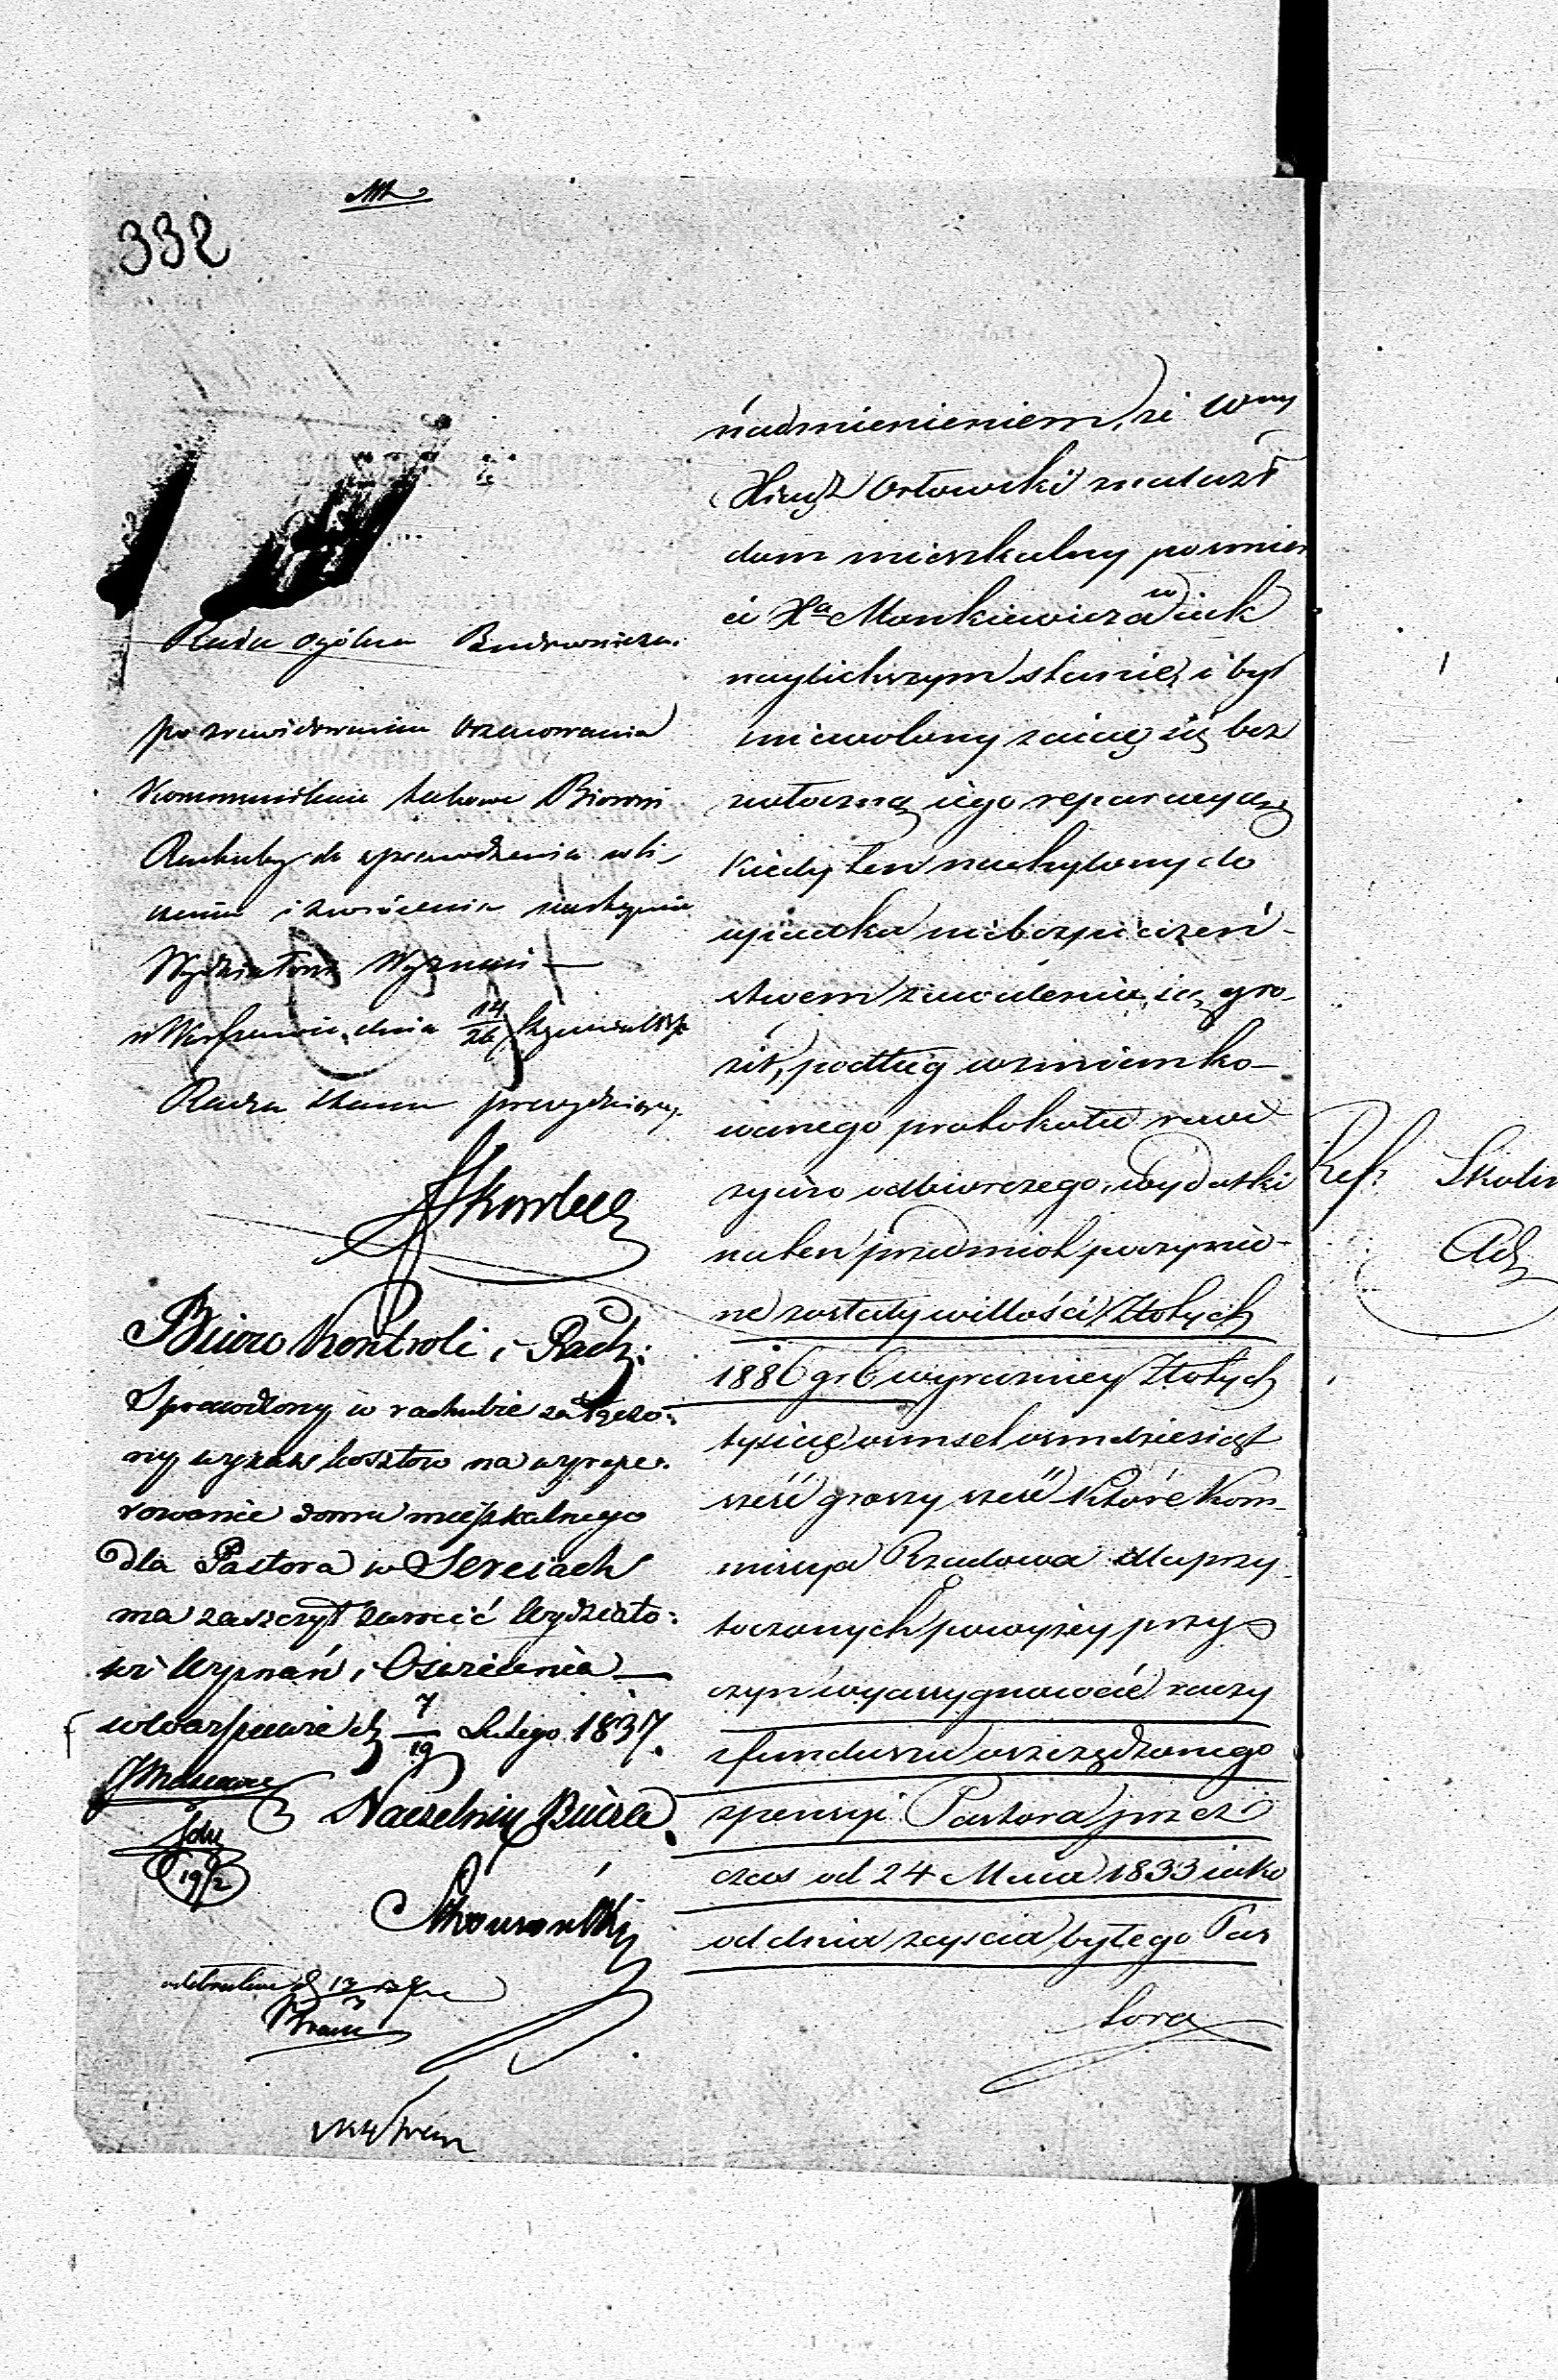 332
Rada ogólna Budownicza.
po zrewidowaniu
Kommunikuie takowe Biorowi
Rachuby do sprawdzenia w li-
czeniu i zwrócenia następnie
Wydziałowi Wyznań —
w Warszawie dnia 14/26
Radca Stanu prezyduiący
Biuro Kontroli i Rach:
Sprawdzony w rachubie załączo:
ny wykaz kosztow na wyrepe:
rowanie domu mieszkalnego
dla Pastora w Sereiach
ma zaszczyt zwrócić Wydziało:
wi Wyznań i Oświecenia —
w Warszawie d. 7/19 Lutego 1837.
Naczelnik Biura
19/2
nadmienieniem, że Wny
Xiądz Orłowski znalazł
dom mieszkalny po śmier
ci Xa Monkiewicza w iak
naylichszym stanie, i był
zniewolony zaiąć się bez
zwłoczną iego reparacyą,
kiedy ten nachylony do
upadku niebezpieczeń-
stwem zawalenia się gro-
ził, podług wzmianko-
wanego protokołu rewi
zyino odbiorczego, wydatki
na ten przedmiot poczynio-
ne zostały w illości Złotych
1886 gr 6 wyrazniey Złotych
tysiąc osmset osmdziesiąt
sześć groszy sześć które Kom-
missya Rządowa dla przy-
toczonych powyżey przy-
czyn wyassygnować raczy
z funduszu oszczędzonego
z pensyi Pastora przez
czas od 24 Maia 1833 iako
od dnia zeyscia byłego Pas
tora